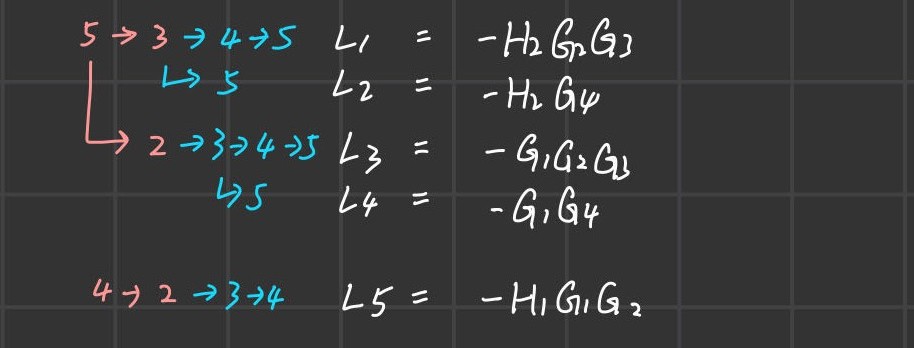 5 → 3 → 4 → 5 L1 = -H2 G2 G3
↳ 5 L2 = -H2 G4
↳ 2 → 3 → 4 → 5 L3 = -G1 G2 G3
↳ 5 L4 = -G1 G4
4 → 2 → 3 → 4 L5 = -H1 G1 G2